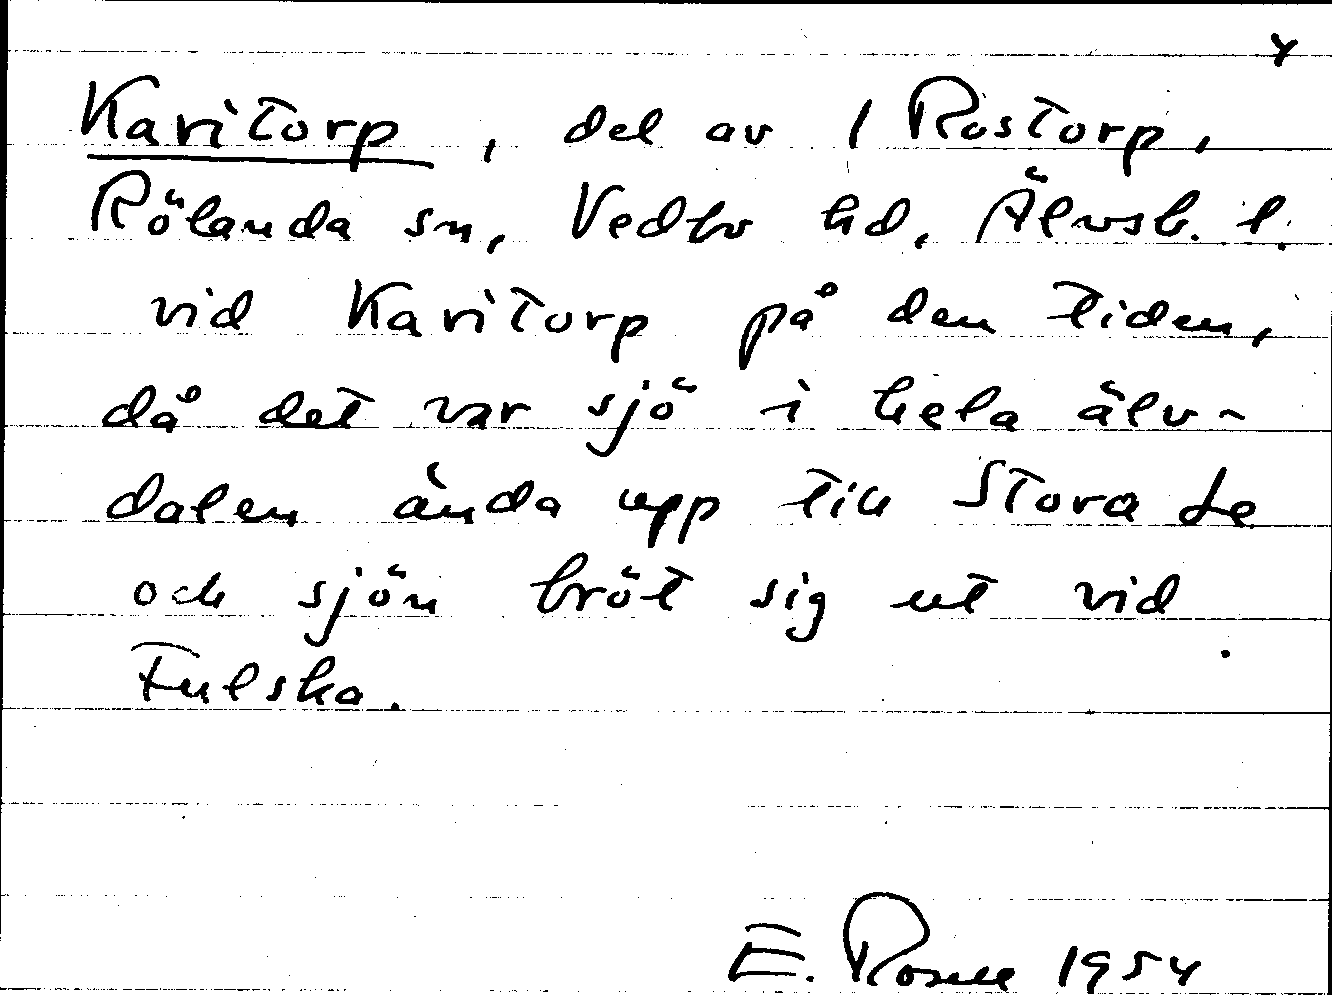 4
Karitorp, del av 1 Rostorp,
Rölanda sn, Vedbo hd, Älvsb. l.
vid Karitorp på den tiden,
då det var sjö i hela älv-
dalen ända upp till Stora Le
och sjön bröt sig ut vid
Fulska.
E. Rosell 1954